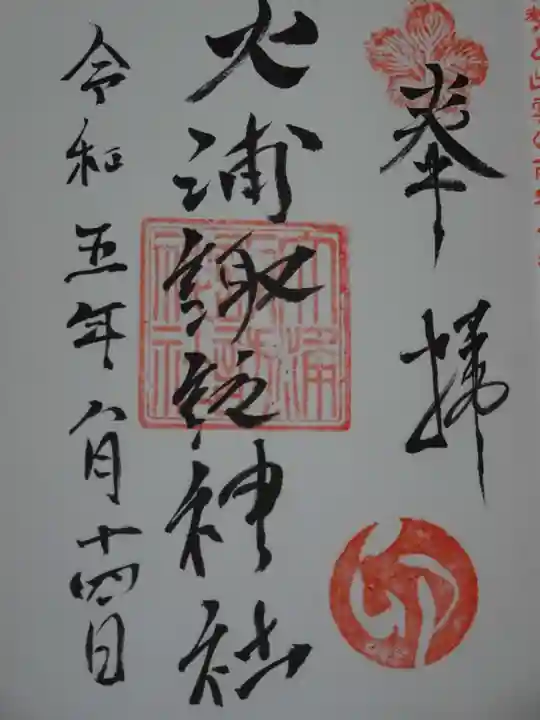 奉拝
大浦諏訪神社
令和五年八月十四日